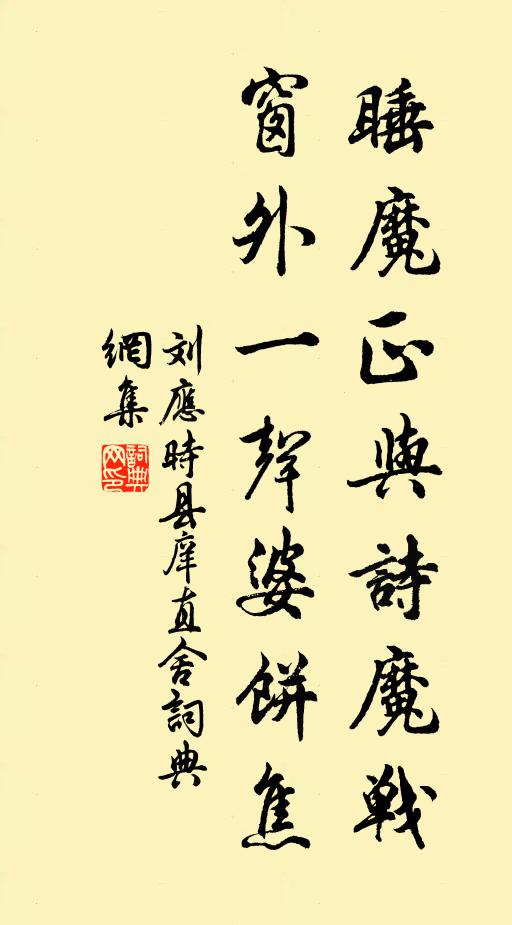 睡魔正與詩魔戰
窗外一聲婆餅焦
刘應時县庠直舍詞典
網集
詞典
网印